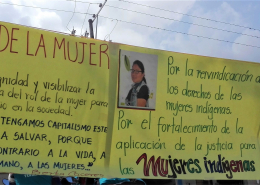 DE LA MUJER
nidad y visibilizar la
del rol de la mujer para
en la sociedad.
TENGAMOS CAPITALISMO ESTE
A SALVAR, PORQUE
CONTRARIO A LA VIDA, A
MANO, A LAS MUJERES..."
Por la reivindicación de
los derechos de las
mujeres indígenas.
Por el fortalecimiento de la
aplicación de la justicia para
las Mujeres indígenas